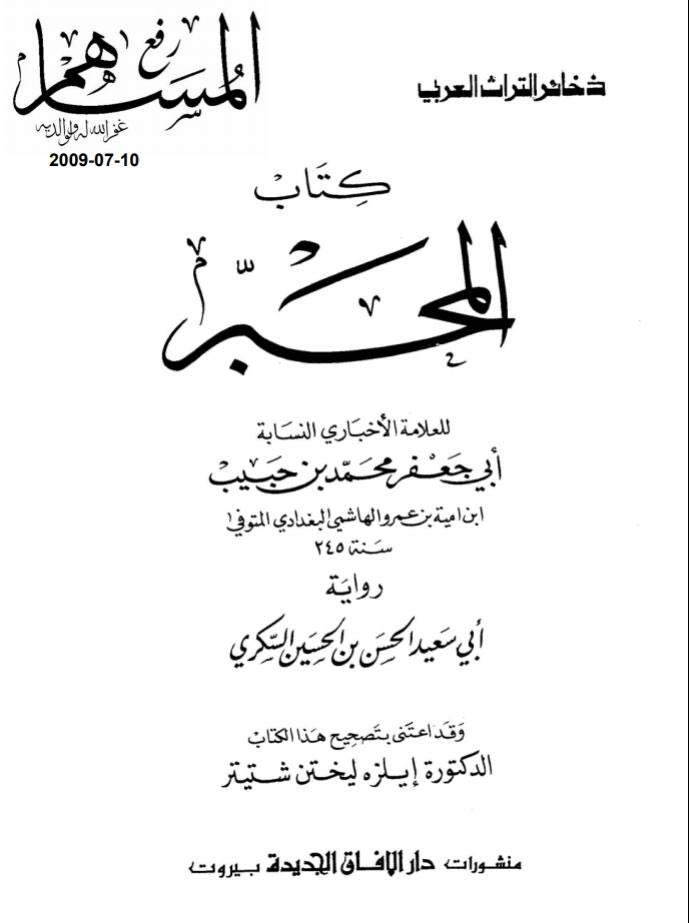 رفع
المساهم
غفر الله له ولوالديه
2009-07-10
ذخائر التراث العربي
كِتَابْ
المحبّر
للعلامة الأخبَاري النسَابة
أبي جَعفر محمَّد بن حبَيبْ
ابن امية بن عمرو الهاشمي البغدادي المتوفى
سَنة ٢٤٥
روايَة
أبي سَعيد الحسَن بن الحسَين السّكري
وَقد اعتَنى بتَصحِيح هَذا الكتابْ
الدكتورة إيلزه ليختن شتيتر
منشورات دار الافاق الجديدة بيروت